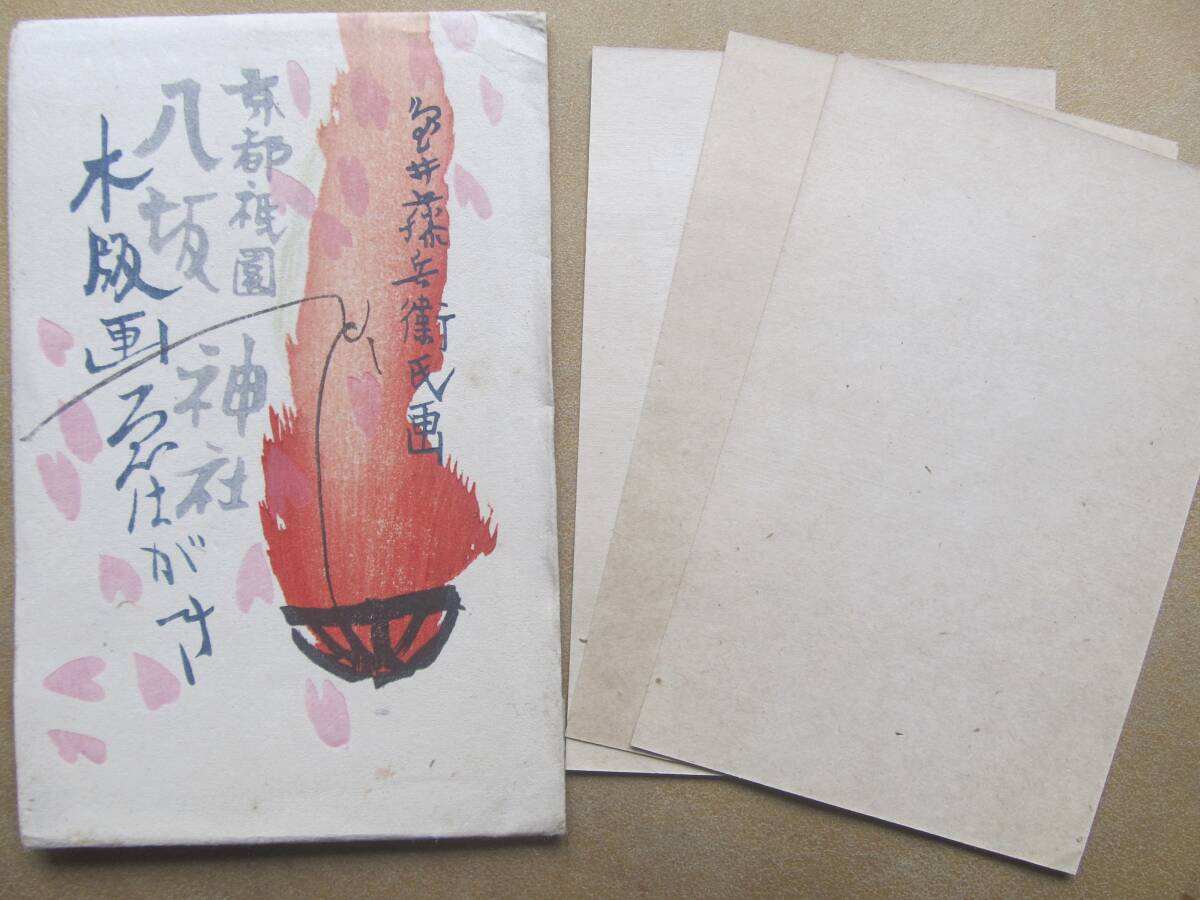 亀井藤兵衛氏画
京都祇園
八坂神社
木版画ゑはがき